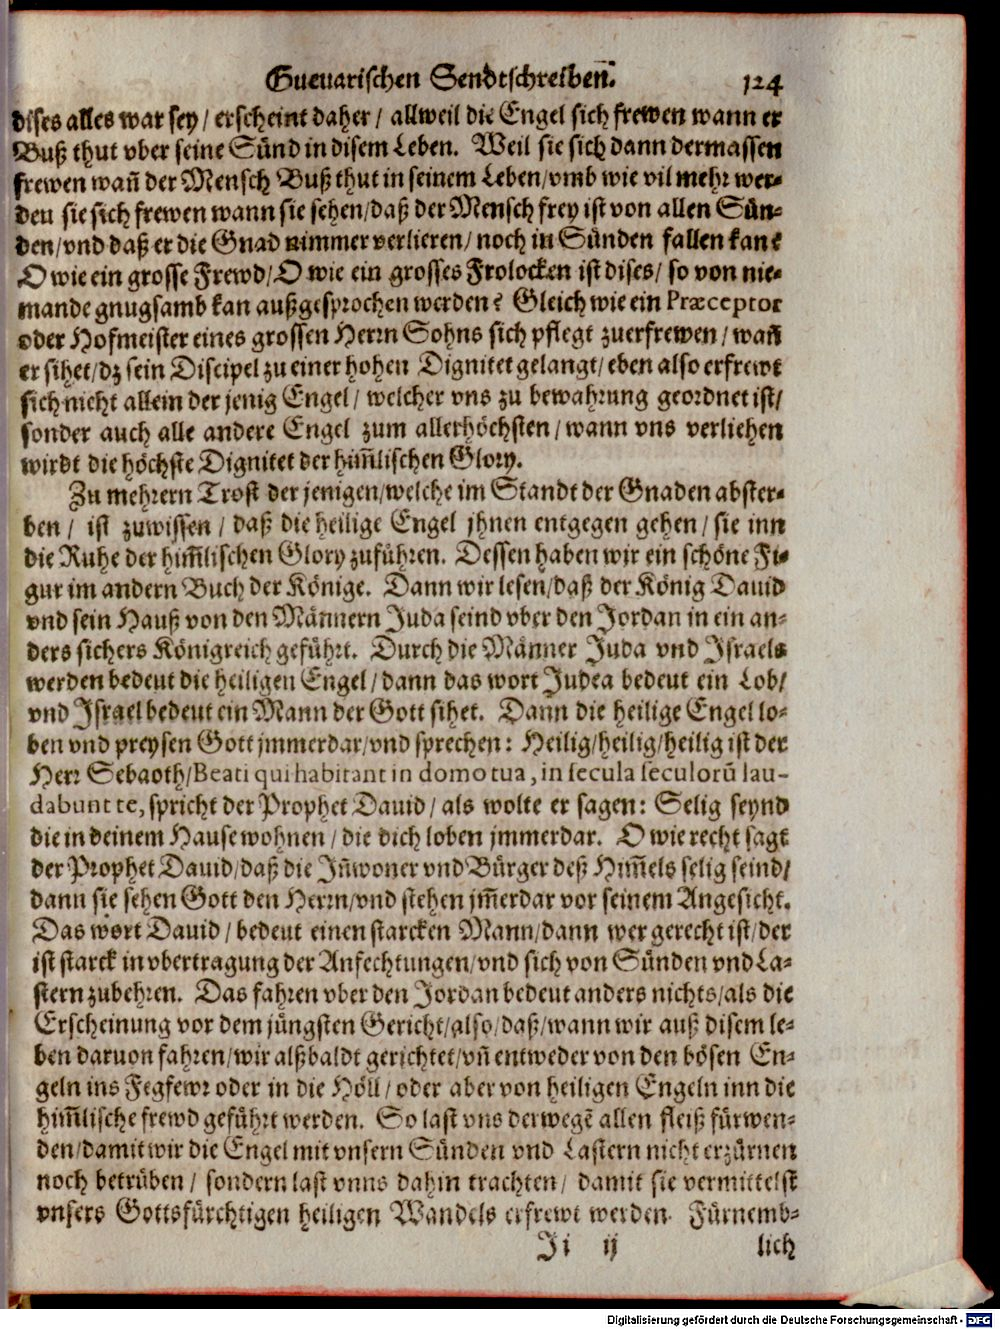 Gueuarischen Sendtschreiben. 124
dises alles war sey/ erscheint daher/ allweil die Engel sich frewen wann er
Buß thut vber seine Sünd in disem Leben. Weil sie sich dann dermassen
frewen wañ der Mensch Buß thut in seinem Leben/vmb wie vil mehr wer-
den sie sich frewen wann sie sehen/daß der Mensch frey ist von allen Sün-
den/vnd daß er die Gnad nimmer verlieren/ noch in Sünden fallen kan?
O wie ein grosse Frewd/O wie ein grosses Frolocken ist dises/ so von nie-
mande gnugsamb kan außgesprochen werden? Gleich wie ein Præceptor
oder Hofmeister eines grossen Herrn Sohns sich pflegt zuerfrewen/ wañ
er sihet/dz sein Discipel zu einer hohen Dignitet gelangt/ eben also erfrewt
sich nicht allein der jenig Engel/ welcher vns zu bewahrung geordnet ist/
sonder auch alle andere Engel zum allerhöchsten/ wann vns verliehen
wirdt die höchste Dignitet der him̃lischen Glory.
Zu mehrern Trost der jenigen/welche im Standt der Gnaden abster-
ben/ ist zuwissen/ daß die heilige Engel jhnen entgegen gehen/ sie inn
die Ruhe der him̃lischen Glory zuführen. Dessen haben wir ein schöne Fi-
gur im andern Buch der Könige. Dann wir lesen/daß der König Dauid
vnd sein Hauß von den Männern Juda seind vber den Jordan in ein an-
ders sichers Königreich geführt. Durch die Männer Juda vnd Jsraels
werden bedeut die heiligen Engel/ dann das wort Judea bedeut ein Lob/
vnd Jsrael bedeut ein Mann der Gott sihet. Dann die heilige Engel lo-
ben vnd preysen Gott jmmerdar/vnd sprechen: Heilig/heilig/heilig ist der
Herr Sebaoth/Beati qui habitant in domo tua, in secula seculorũ lau-
dabunt te, spricht der Prophet Dauid/ als wolte er sagen: Selig seynd
die in deinem Hause wohnen/ die dich loben jmmerdar. O wie recht sagt
der Prophet Dauid/daß die Jñwoner vnd Bürger deß Him̃els selig seind/
dann sie sehen Gott den Herrn/vnd stehen jm̃erdar vor seinem Angesicht.
Das wort Dauid/ bedeut einen starcken Mann/dann wer gerecht ist/der
ist starck in vbertragung der Anfechtungen/vnd sich von Sünden vnd La-
stern zubehren. Das fahren vber den Jordan bedeut anders nichts/als die
Erscheinung vor dem jüngsten Gericht/also/daß/wann wir auß disem le-
ben daruon fahren/wir alßbaldt gerichtet/vñ entweder von den bösen En-
geln ins Fegfewr oder in die Höll/ oder aber von heiligen Engeln inn die
him̃lische frewd geführt werden. So last vns derwegẽ allen fleiß fürwen-
den/damit wir die Engel mit vnsern Sünden vnd Lastern nicht erzürnen
noch betrüben/ sondern last vnns dahin trachten/ damit sie vermittelst
vnsers Gottsfürchtigen heiligen Wandels erfrewt werden. Fürnemb-
Ji ij lich
Digitalisierung gefördert durch die Deutsche Forschungsgemeinschaft - DFG